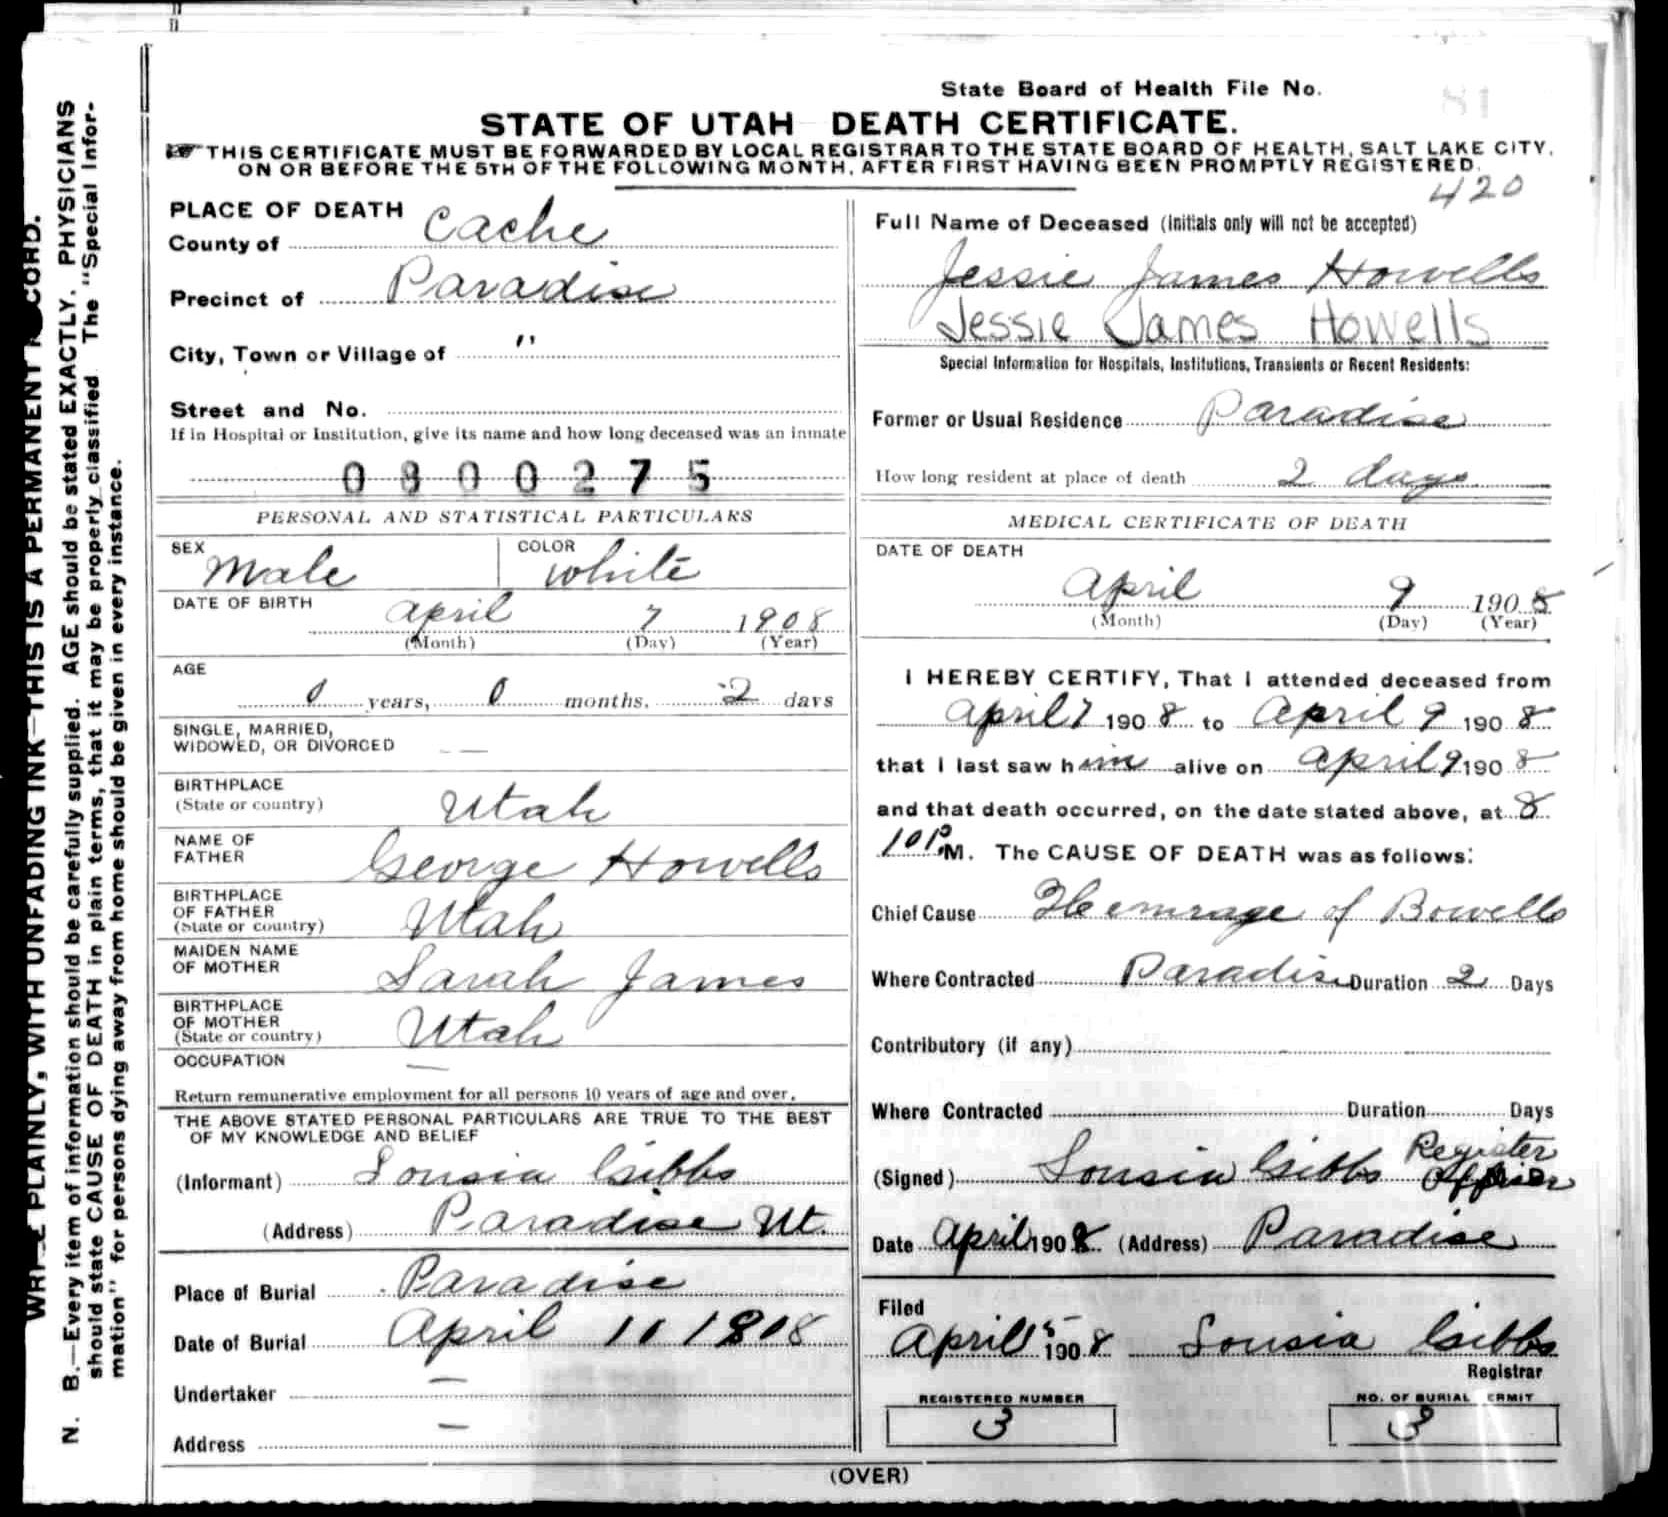 State Board of Health File No. 81
STATE OF UTAH DEATH CERTIFICATE.
THIS CERTIFICATE MUST BE FORWARDED BY LOCAL REGISTRAR TO THE STATE BOARD OF HEALTH, SALT LAKE CITY,
ON OR BEFORE THE 5TH OF THE FOLLOWING MONTH, AFTER FIRST HAVING BEEN PROMPTLY REGISTERED.
420
PLACE OF DEATH
County of Cache
Precinct of Paradise
City, Town or Village of "
Street and No.
If in Hospital or Institution, give its name and how long deceased was an inmate
0800275
PERSONAL AND STATISTICAL PARTICULARS
SEX Male COLOR White
DATE OF BIRTH April 7 1908
(Month) (Day) (Year)
AGE
0 years, 0 months, 2 days
SINGLE, MARRIED,
WIDOWED, OR DIVORCED — —
BIRTHPLACE
(State or country) Utah
NAME OF
FATHER George Howells
BIRTHPLACE
OF FATHER
(State or country) Utah
MAIDEN NAME
OF MOTHER Sarah James
BIRTHPLACE
OF MOTHER
(State or country) Utah
OCCUPATION —
Return remunerative employment for all persons 10 years of age and over.
THE ABOVE STATED PERSONAL PARTICULARS ARE TRUE TO THE BEST
OF MY KNOWLEDGE AND BELIEF
(Informant) Lousia Gibbs
(Address) Paradise Ut.
Place of Burial Paradise
Date of Burial April 11 1908
Undertaker —
Address —
Full Name of Deceased (Initials only will not be accepted)
Jessie James Howells
Jessie James Howells
Special Information for Hospitals, Institutions, Transients or Recent Residents:
Former or Usual Residence Paradise
How long resident at place of death 2 days
MEDICAL CERTIFICATE OF DEATH
DATE OF DEATH
April 9 1908
(Month) (Day) (Year)
I HEREBY CERTIFY, That I attended deceased from
April 7 1908 to April 9 1908
that I last saw him alive on April 9 1908
and that death occurred, on the date stated above, at 8
10 P.M. The CAUSE OF DEATH was as follows:
Chief Cause Hemrage of Bowells
Where Contracted Paradise Duration 2 Days
Contributory (if any)
Where Contracted Duration Days
Register
(Signed) Lousia Gibbs
Date April 1908 (Address) Paradise
Filed
April 15 1908 Lousia Gibbs
Registrar
REGISTERED NUMBER
3
NO. OF BURIAL ERMIT
3
(OVER)
WRITE PLAINLY, WITH UNFADING INK—THIS IS A PERMANENT RECORD.
N. B.—Every item of information should be carefully supplied. AGE should be stated EXACTLY. PHYSICIANS
should state CAUSE OF DEATH in plain terms, that it may be properly classified The "Special Infor-
mation" for persons dying away from home should be given in every instance.